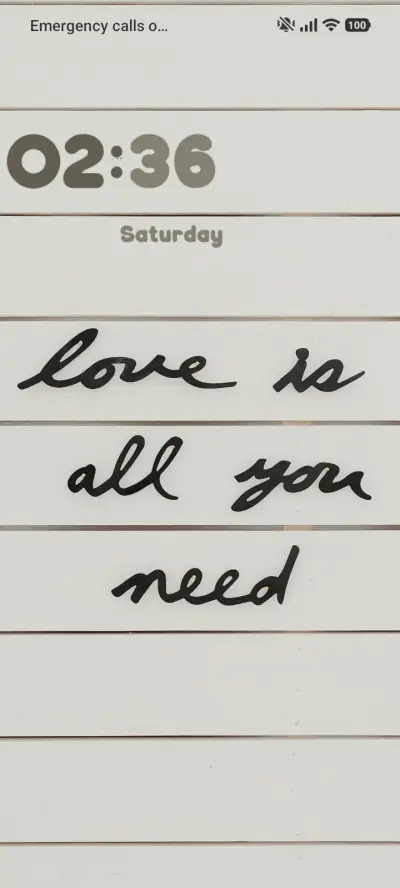 Emergency calls o...
100
02:36
Saturday
love is
all you
need